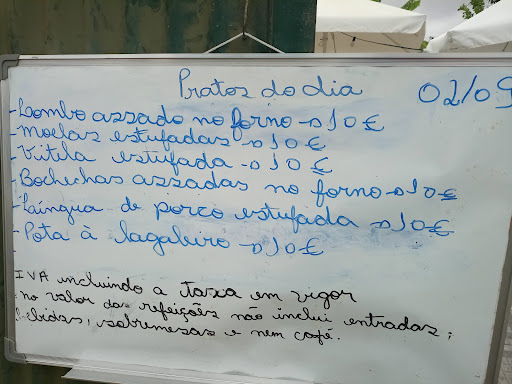 Pratos do dia 02/09
- Lombo assado no forno → 10€
- Moelas estufadas → 10€
- Vitela estufada → 10€
- Bochechas assadas no forno → 10€
- Laíngua de porco estufada → 10€
- Pota à lagaleiro → 10€
IVA incluindo a taxa em vigor
no valor das refeições não inclui entradas;
bebidas, sobremesas e nem café.